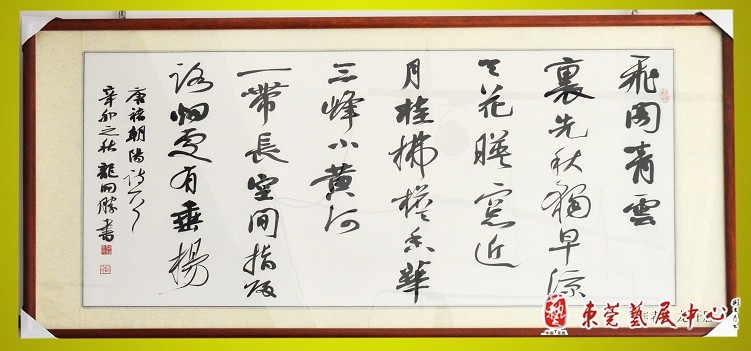 飛閣青雲
裏先秋獨早涼
天花暎窓近
月桂拂檐香華
三峰小黃河
一帶長空間指
歸路處有垂楊
唐張朝陽詩一首
辛卯之秋龍向勝書
東莞藝展中心